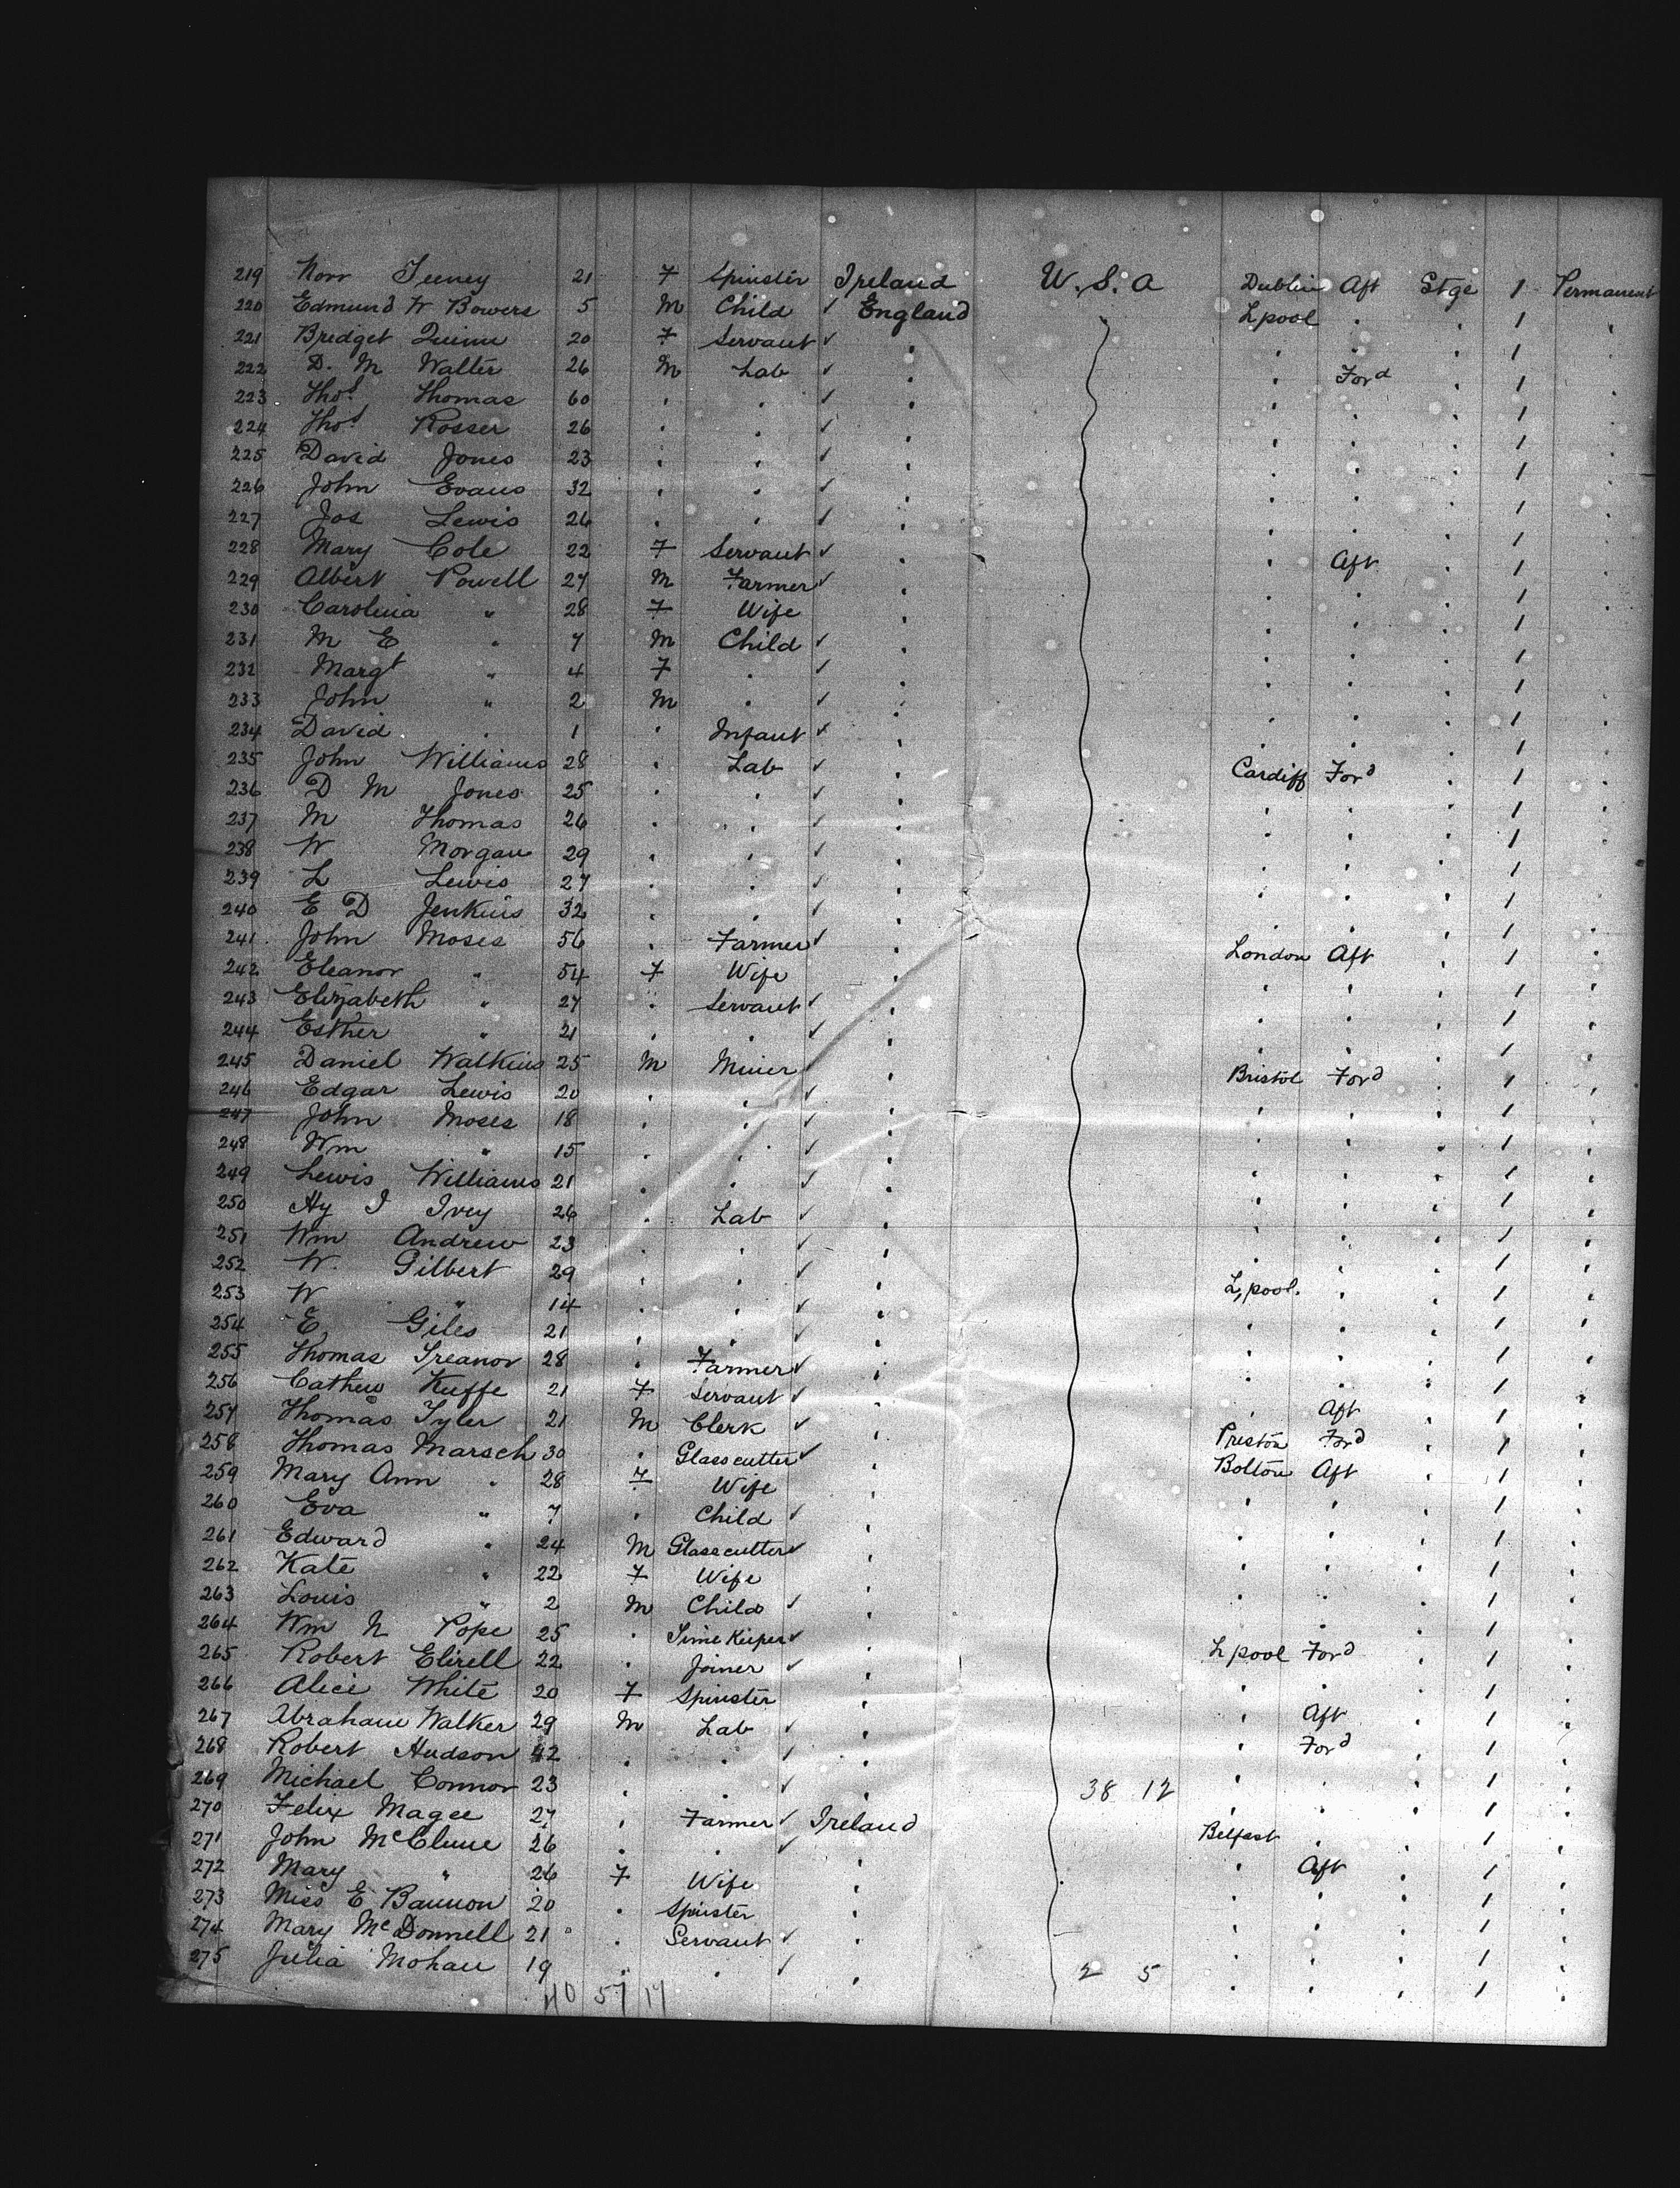 219 Norr Feeney 21 F Spinster Ireland U.S.A Dublin Aft Stge 1 Permanent
220 Edmund W Bowers 5 M Child ✓ England Lpool " " 1 "
221 Bridget Quinn 20 F Servant ✓ " " " " 1 "
222 D. M Walter 26 M Lab ✓ " " Ford " 1 "
223 Thos Thomas 60 " " ✓ " " " " 1 "
224 Thos Rosser 26 " " ✓ " " " " 1 "
225 David Jones 23 " " ✓ " " " " 1 "
226 John Evans 32 " " ✓ " " " " 1 "
227 Jos Lewis 26 " " ✓ " " " " 1 "
228 Mary Cole 22 F Servant ✓ " " Aft " 1 "
229 Albert Powell 27 M Farmer ✓ " " " " 1 "
230 Carolina " 28 F Wife " " " " 1 "
231 M E " 7 M Child ✓ " " " " 1 "
232 Margt " 4 F " ✓ " " " " 1 "
233 John " 2 M " ✓ " " " " 1 "
234 David " 1 " Infant ✓ " " " " 1 "
235 John Williams 28 " Lab ✓ " Cardiff Ford " 1 "
236 D M Jones 25 " " ✓ " " " " 1 "
237 M Thomas 26 " " ✓ " " " " 1 "
238 W Morgan 29 " " ✓ " " " " 1 "
239 L Lewis 27 " " ✓ " " " " 1 "
240 E D Jenkins 32 " " ✓ " " " " 1 "
241 John Moses 56 " Farmer ✓ " London Aft " 1 "
242 Eleanor " 54 F Wife " " " " 1 "
243 Elizabeth " 27 " Servant ✓ " " " " 1 "
244 Esther " 21 " " ✓ " " " " 1 "
245 Daniel Watkins 25 M Miner " Bristol Ford " 1 "
246 Edgar Lewis 20 " " ✓ " " " " 1 "
247 John Moses 18 " " ✓ " " " " 1 "
248 Wm " 15 " " ✓ " " " " 1 "
249 Lewis Williams 21 " " ✓ " " " " 1 "
250 Hy J Ivey 26 " Lab ✓ " " " " 1 "
251 Wm Andrew 23 " " ✓ " " " " 1 "
252 W. Gilbert 29 " " ✓ " Lpool. " " 1 "
253 W " 14 " " ✓ " " " " 1 "
254 E Giles 21 " " ✓ " " " " 1 "
255 Thomas Treanor 28 " Farmer ✓ " " " " 1 "
256 Cathew Keeffe 21 F Servant ✓ " " Aft " 1 "
257 Thomas Tyler 21 M Clerk ✓ " Preston Ford " 1 "
258 Thomas Marsch 30 " Glasscutter ✓ " Bolton Aft " 1 "
259 Mary Ann " 28 F Wife " " " " 1 "
260 Eva " 7 " Child ✓ " " " " 1 "
261 Edward " 24 M Glasscutter ✓ " " " " 1 "
262 Kate " 22 F Wife " " " " 1 "
263 Louis " 2 M Child ✓ " " " " 1 "
264 Wm N Pope 25 " Time Keeper ✓ " Lpool Ford " 1 "
265 Robert Elirell 22 " Joiner ✓ " " " " 1 "
266 Alice White 20 F Spinster " " Aft " 1 "
267 Abraham Walker 29 M Lab ✓ " " Ford " 1 "
268 Robert Hudson 42 " " ✓ " " " " 1 "
269 Michael Connor 23 " " ✓ " 38 12 " " " 1 "
270 Felix Magee 27 " Farmer ✓ Ireland Belfast " " 1 "
271 John McClune 26 " " ✓ " " Aft " 1 "
272 Mary " 26 F Wife " " " " 1 "
273 Miss E Bannon 20 " Spinster " " " " 1 "
274 Mary McDonnell 21 " Servant ✓ " " " " 1 "
275 Julia Mohan 19 " " ✓ " 2 5 " " " 1 "
40 57 17